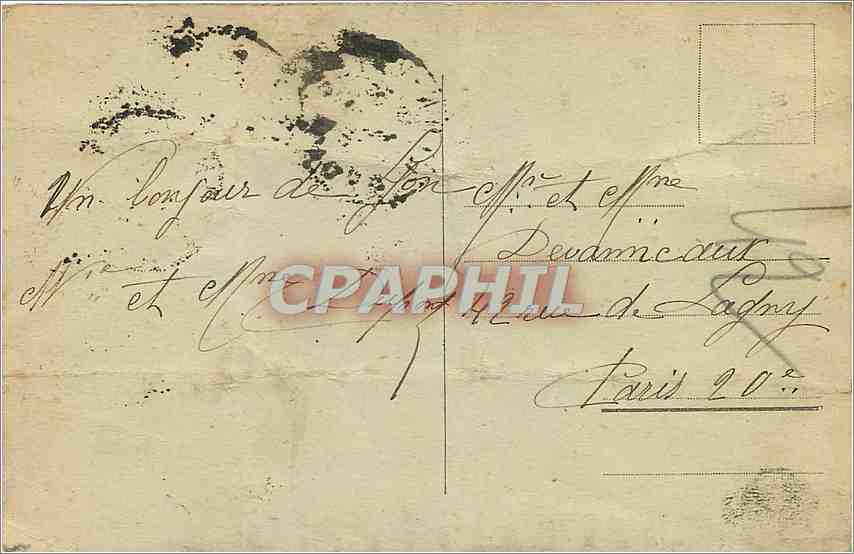 Un bonjour de Lyon
Mr et Mme
CPARHIL
Mr et Mme
Devanneaux
42 rue de Lagny
Paris 20e